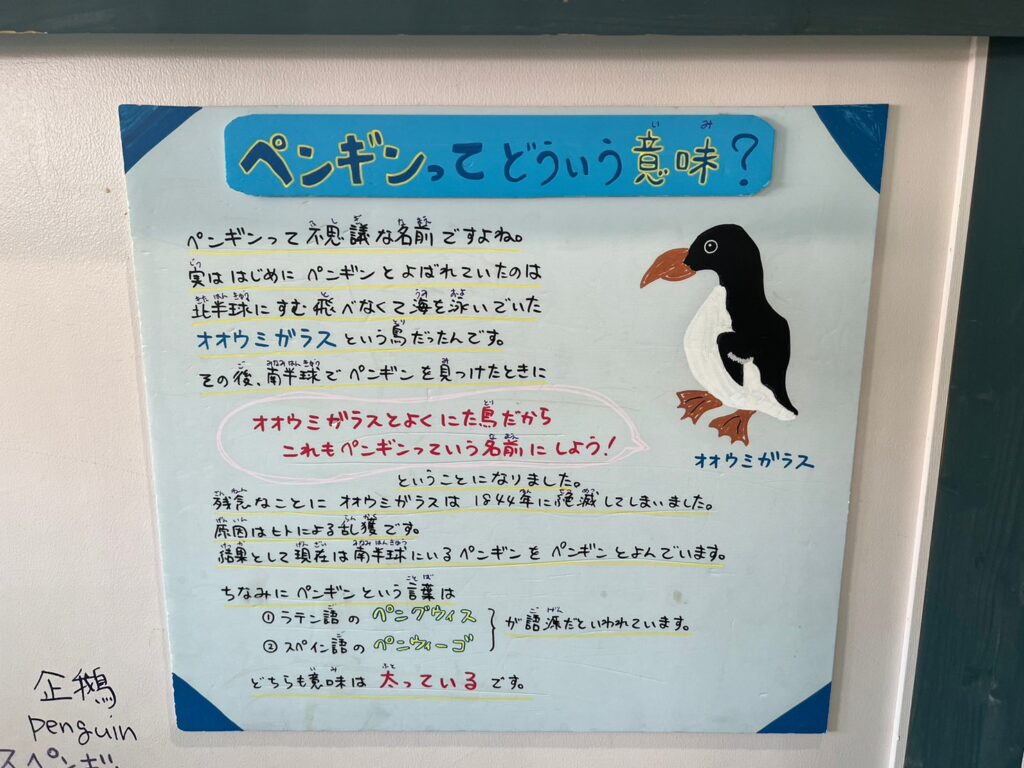 ペンギンってどういう意味?
ペンギンって不思議な名前ですよね。
実ははじめにペンギンとよばれていたのは
北半球にすむ飛べなくて海を泳いでいた
オオウミガラスという鳥だったんです。
その後、南半球でペンギンを見つけたときに
オオウミガラスとよくにた鳥だから
これもペンギンっていう名前にしよう!
ということになりました。
残念なことにオオウミガラスは1844年に絶滅してしまいました。
原因はヒトによる乱獲です。
結果として現在は南半球にいるペンギンをペンギンとよんでいます。
ちなみにペンギンという言葉は
①ラテン語のペングウィス
②スペイン語のペンウィーゴ
が語源だといわれています。
どちらも意味は太っているです。
オオウミガラス
企鵝
penguin